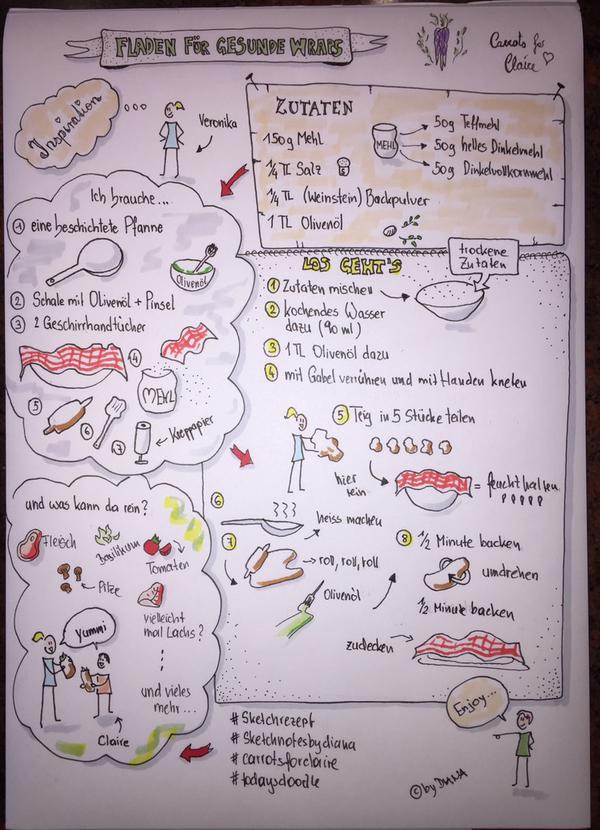 FLADEN FÜR GESUNDE WRAPS
Carrots for
Claire
Inspiration
Veronika
ZUTATEN
150g Mehl
1/4 TL Salz
1/4 TL (Weinstein) Backpulver
1 TL Olivenöl
MEHL
50g Teffmehl
50g helles Dinkelmehl
50g Dinkelvollkornmehl
Ich brauche...
1 eine beschichtete Pfanne
Olivenöl
2 Schale mit Olivenöl + Pinsel
3 2 Geschirrhandtücher
4
MEHL
5
6
7
Kreppapier
LOS GEHT'S
trockene
Zutaten
1 Zutaten mischen
2 kochendes Wasser
dazu (90 ml)
3 1 TL Olivenöl dazu
4 mit Gabel verrühren und mit Händen kneten
5 Teig in 5 Stücke teilen
hier
rein
= feucht halten
!!!!!
6
heiss machen
7
roll, roll, roll
Olivenöl
8 1/2 Minute backen
umdrehen
1/2 Minute backen
zudecken
und was kann da rein?
Fleisch
Basilikum
Tomaten
Pilze
vielleicht
mal Lachs?
Yummi
und vieles
mehr...
Claire
#Sketchrezept
#Sketchnotesbydiana
#carrotsforclaire
#todaysdoodle
Enjoy...
© by DIANA